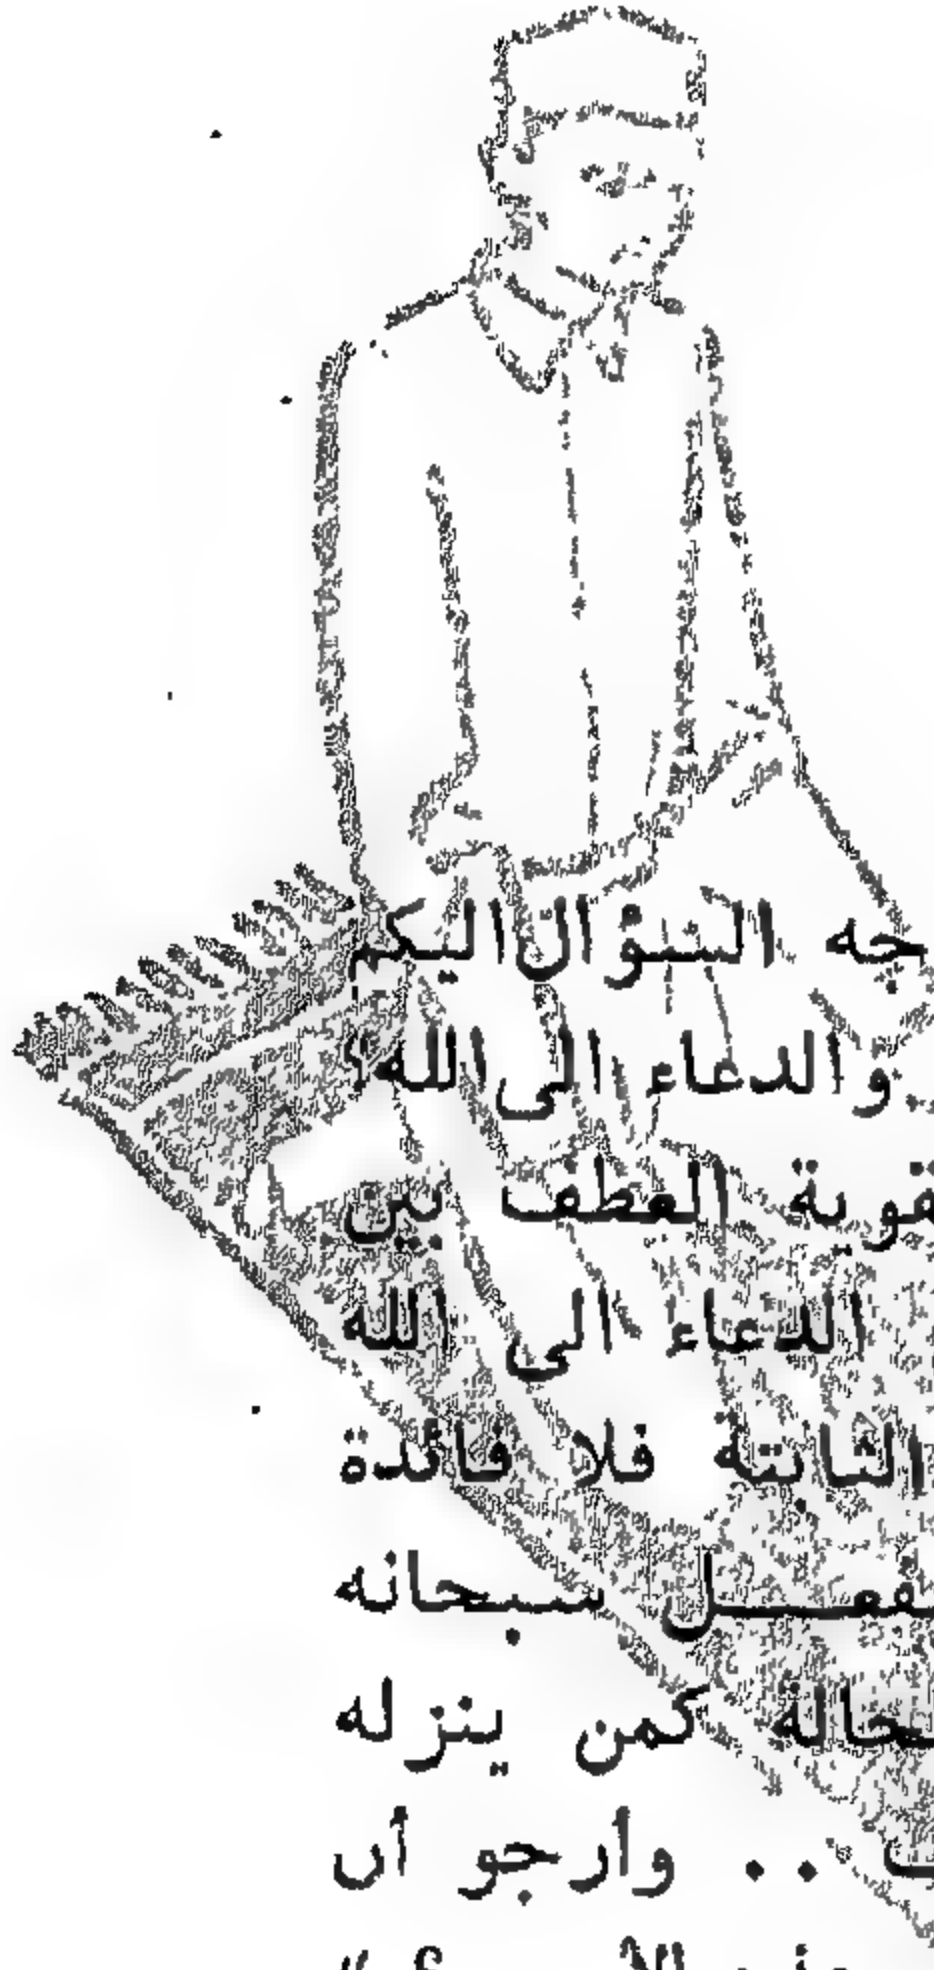 السؤال اليكم
.. والدعاء الى الله
العطف بين
الدعاء الى الله
الثابتة فلا فائدة
سبحانه
كمن ينزله
.. وأرجو أن